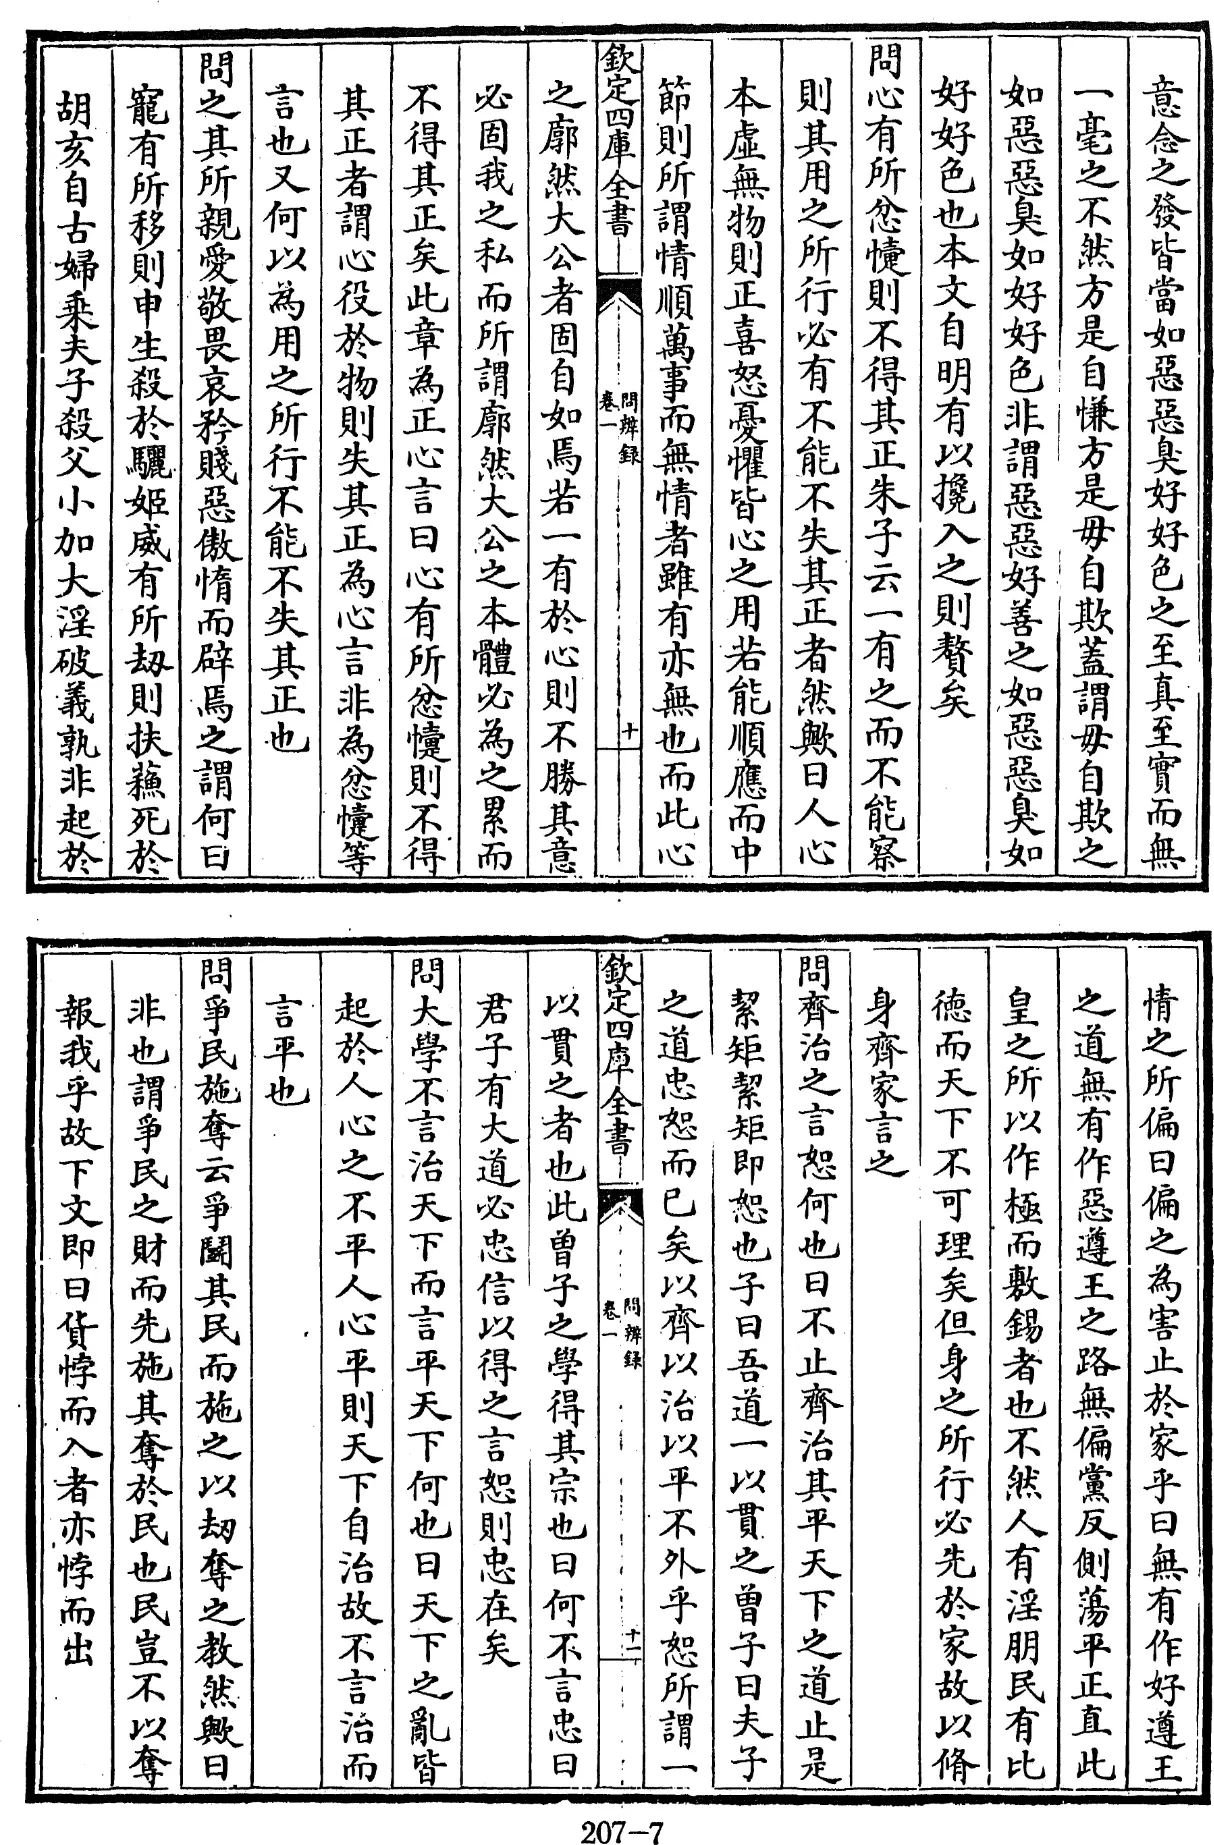 意念之發皆當如惡惡臭好好色之至真至實而無
一毫之不然方是自慊方是毋自欺蓋謂毋自欺之
如惡惡臭如好好色非謂惡惡好善之如惡惡臭如
好好色也本文自明有以攙入之則贅矣
問心有所忿懥則不得其正朱子云一有之而不能察
則其用之所行必有不能不失其正者然歟曰人心
本虛無物則正喜怒憂懼皆心之用若能順應而中
節則所謂情順萬事而無情者雖有亦無也而此心
欽定四庫全書
問辨錄
卷一
十
之廓然大公者固自如焉若一有於心則不勝其意
必固我之私而所謂廓然大公之本體必為之累而
不得其正矣此章為正心言曰心有所忿懥則不得
其正者謂心役於物則失其正為心言非為忿懥等
言也又何以為用之所行不能不失其正也
問之其所親愛敬畏哀矜賤惡傲惰而辟焉之謂何曰
寵有所移則申生殺於驪姬威有所劫則扶蘓死於
胡亥自古婦乘夫子殺父小加大淫破義孰非起於
情之所偏曰偏之為害止於家乎曰無有作好遵王
之道無有作惡遵王之路無偏黨反側蕩平正直此
皇之所以作極而敷錫者也不然人有淫朋民有比
德而天下不可理矣但身之所行必先於家故以脩
身齊家言之
問齊治之言恕何也曰不止齊治其平天下之道止是
絜矩絜矩即恕也子曰吾道一以貫之曾子曰夫子
之道忠恕而已矣以齊以治以平不外乎恕所謂一
欽定四庫全書
問辨錄
卷一
十一
以貫之者也此曾子之學得其宗也曰何不言忠曰
君子有大道必忠信以得之言恕則忠在矣
問大學不言治天下而言平天下何也曰天下之亂皆
起於人心之不平人心平則天下自治故不言治而
言平也
問爭民施奪云爭鬭其民而施之以劫奪之教然歟曰
非也謂爭民之財而先施其奪於民也民豈不以奪
報我乎故下文即曰貨悖而入者亦悖而出
207-7